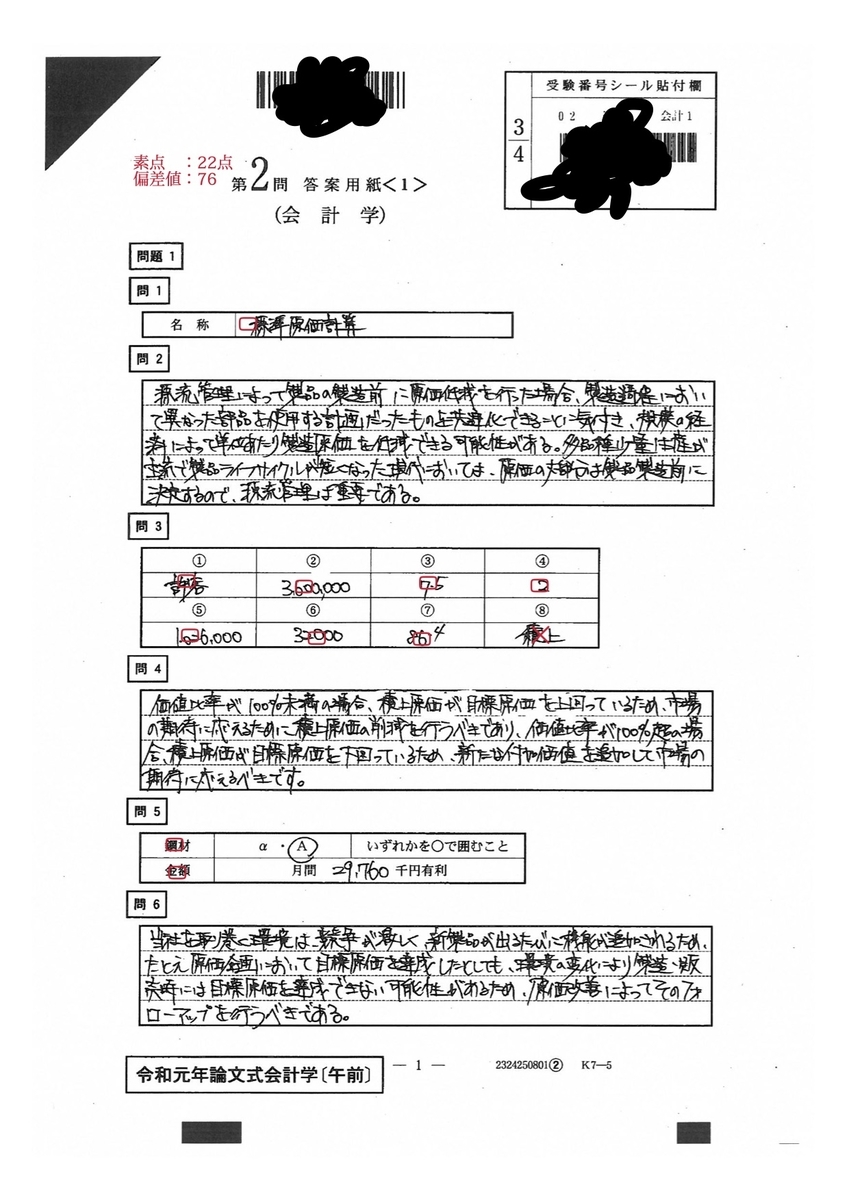 受験番号シール貼付欄
3/4
02 会計1
素点 ：22点
偏差値：76
第2問 答案用紙<1>
(会計学)
問題 1
問 1
名 称 源流原価計算
問 2
源流管理によって製品の製造前に原価低減を行った場合、製造過程におい
て異なった部品を使用する計画だったものを共通化できることに気付き、規模の経
済によって単位あたり製造原価を低減できる可能性がある。多品種少量生産が
主流で製品ライフサイクルが短くなった現代においては、原価の大部分は製品製造前に
決定するので、源流管理は重要である。
問 3
① ② ③ ④
許容 3,600,000 7.5 2
⑤ ⑥ ⑦ ⑧
1,636,000 32,000 86.4 積上
問 4
価値比率が100%未満の場合、積上原価が目標原価を上回っているため、市場
の期待に応えるために積上原価の削減を行うべきであり、価値比率が100%超の場
合、積上原価が目標原価を下回っているため、新たな付加価値を追加して市場の
期待に応えるべきです。
問 5
鋼材 α ・ A いずれかを○で囲むこと
金額 月間 29,760 千円有利
問 6
当社を取り巻く環境は、競争が激しく、新製品が出るたびに機能が追加されるため、
たとえ原価企画において目標原価を達成したとしても、環境の変化により製造・販
売時には目標原価を達成できない可能性があるため、原価改善によってそのフォ
ローアップを行うべきである。
令和元年論文式会計学〔午前〕
— 1 —
2324250801② K7—5